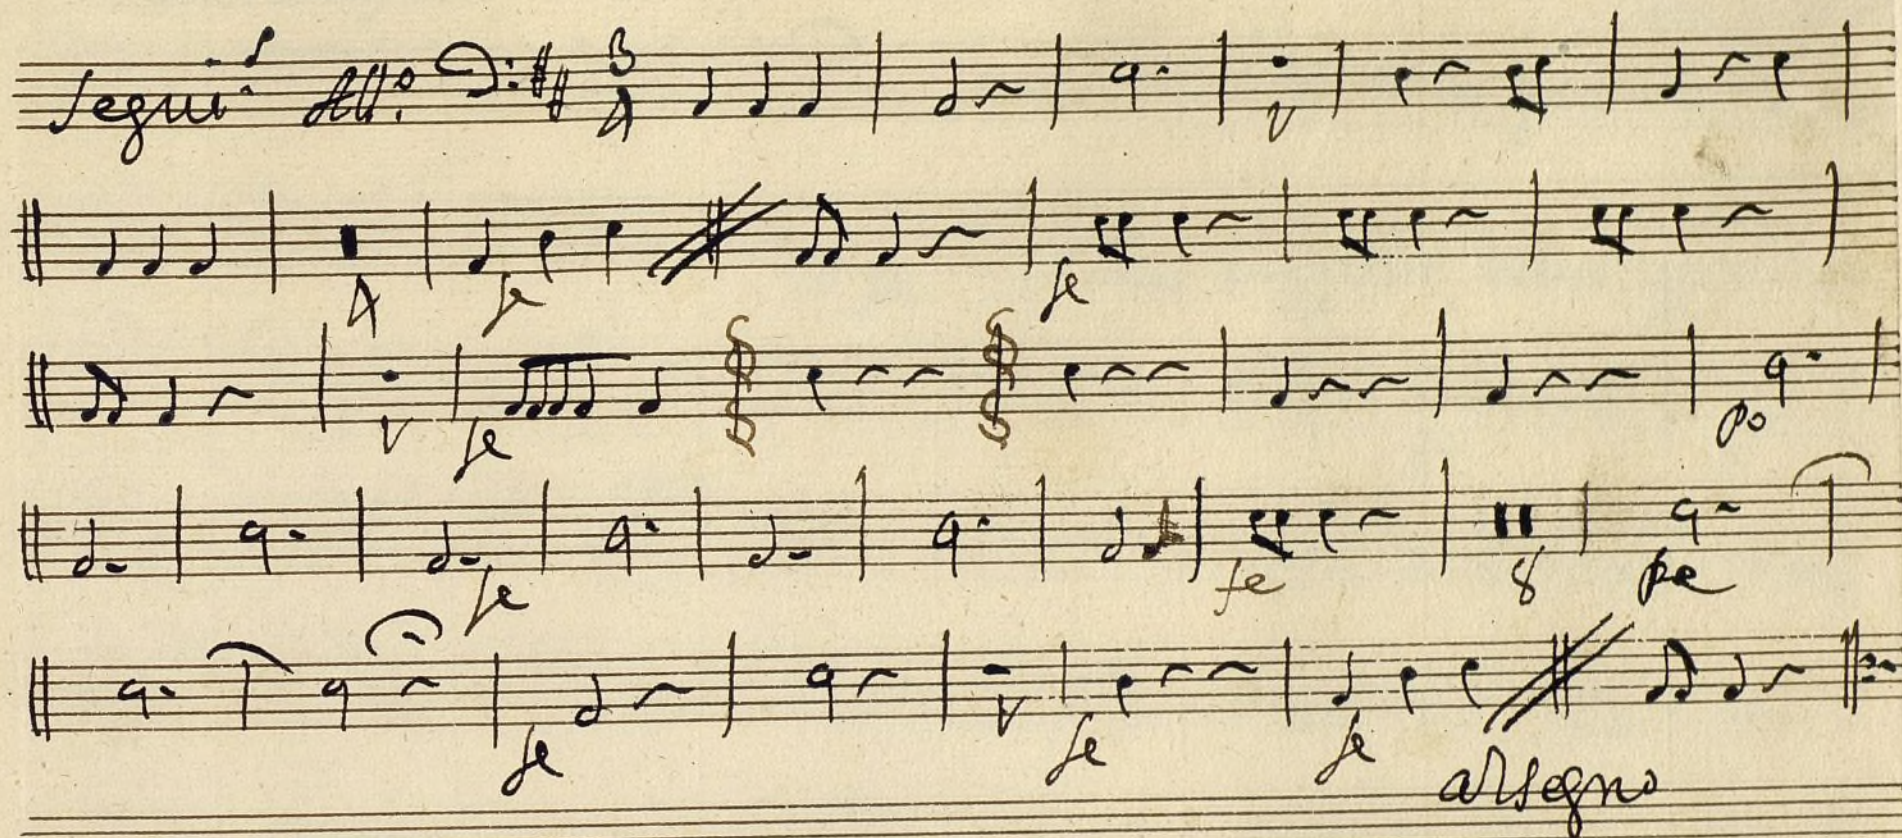 Segui Allo. 3 4
4 fe fe
fe po
fe fe 8 pe
fe fe fe
al segno